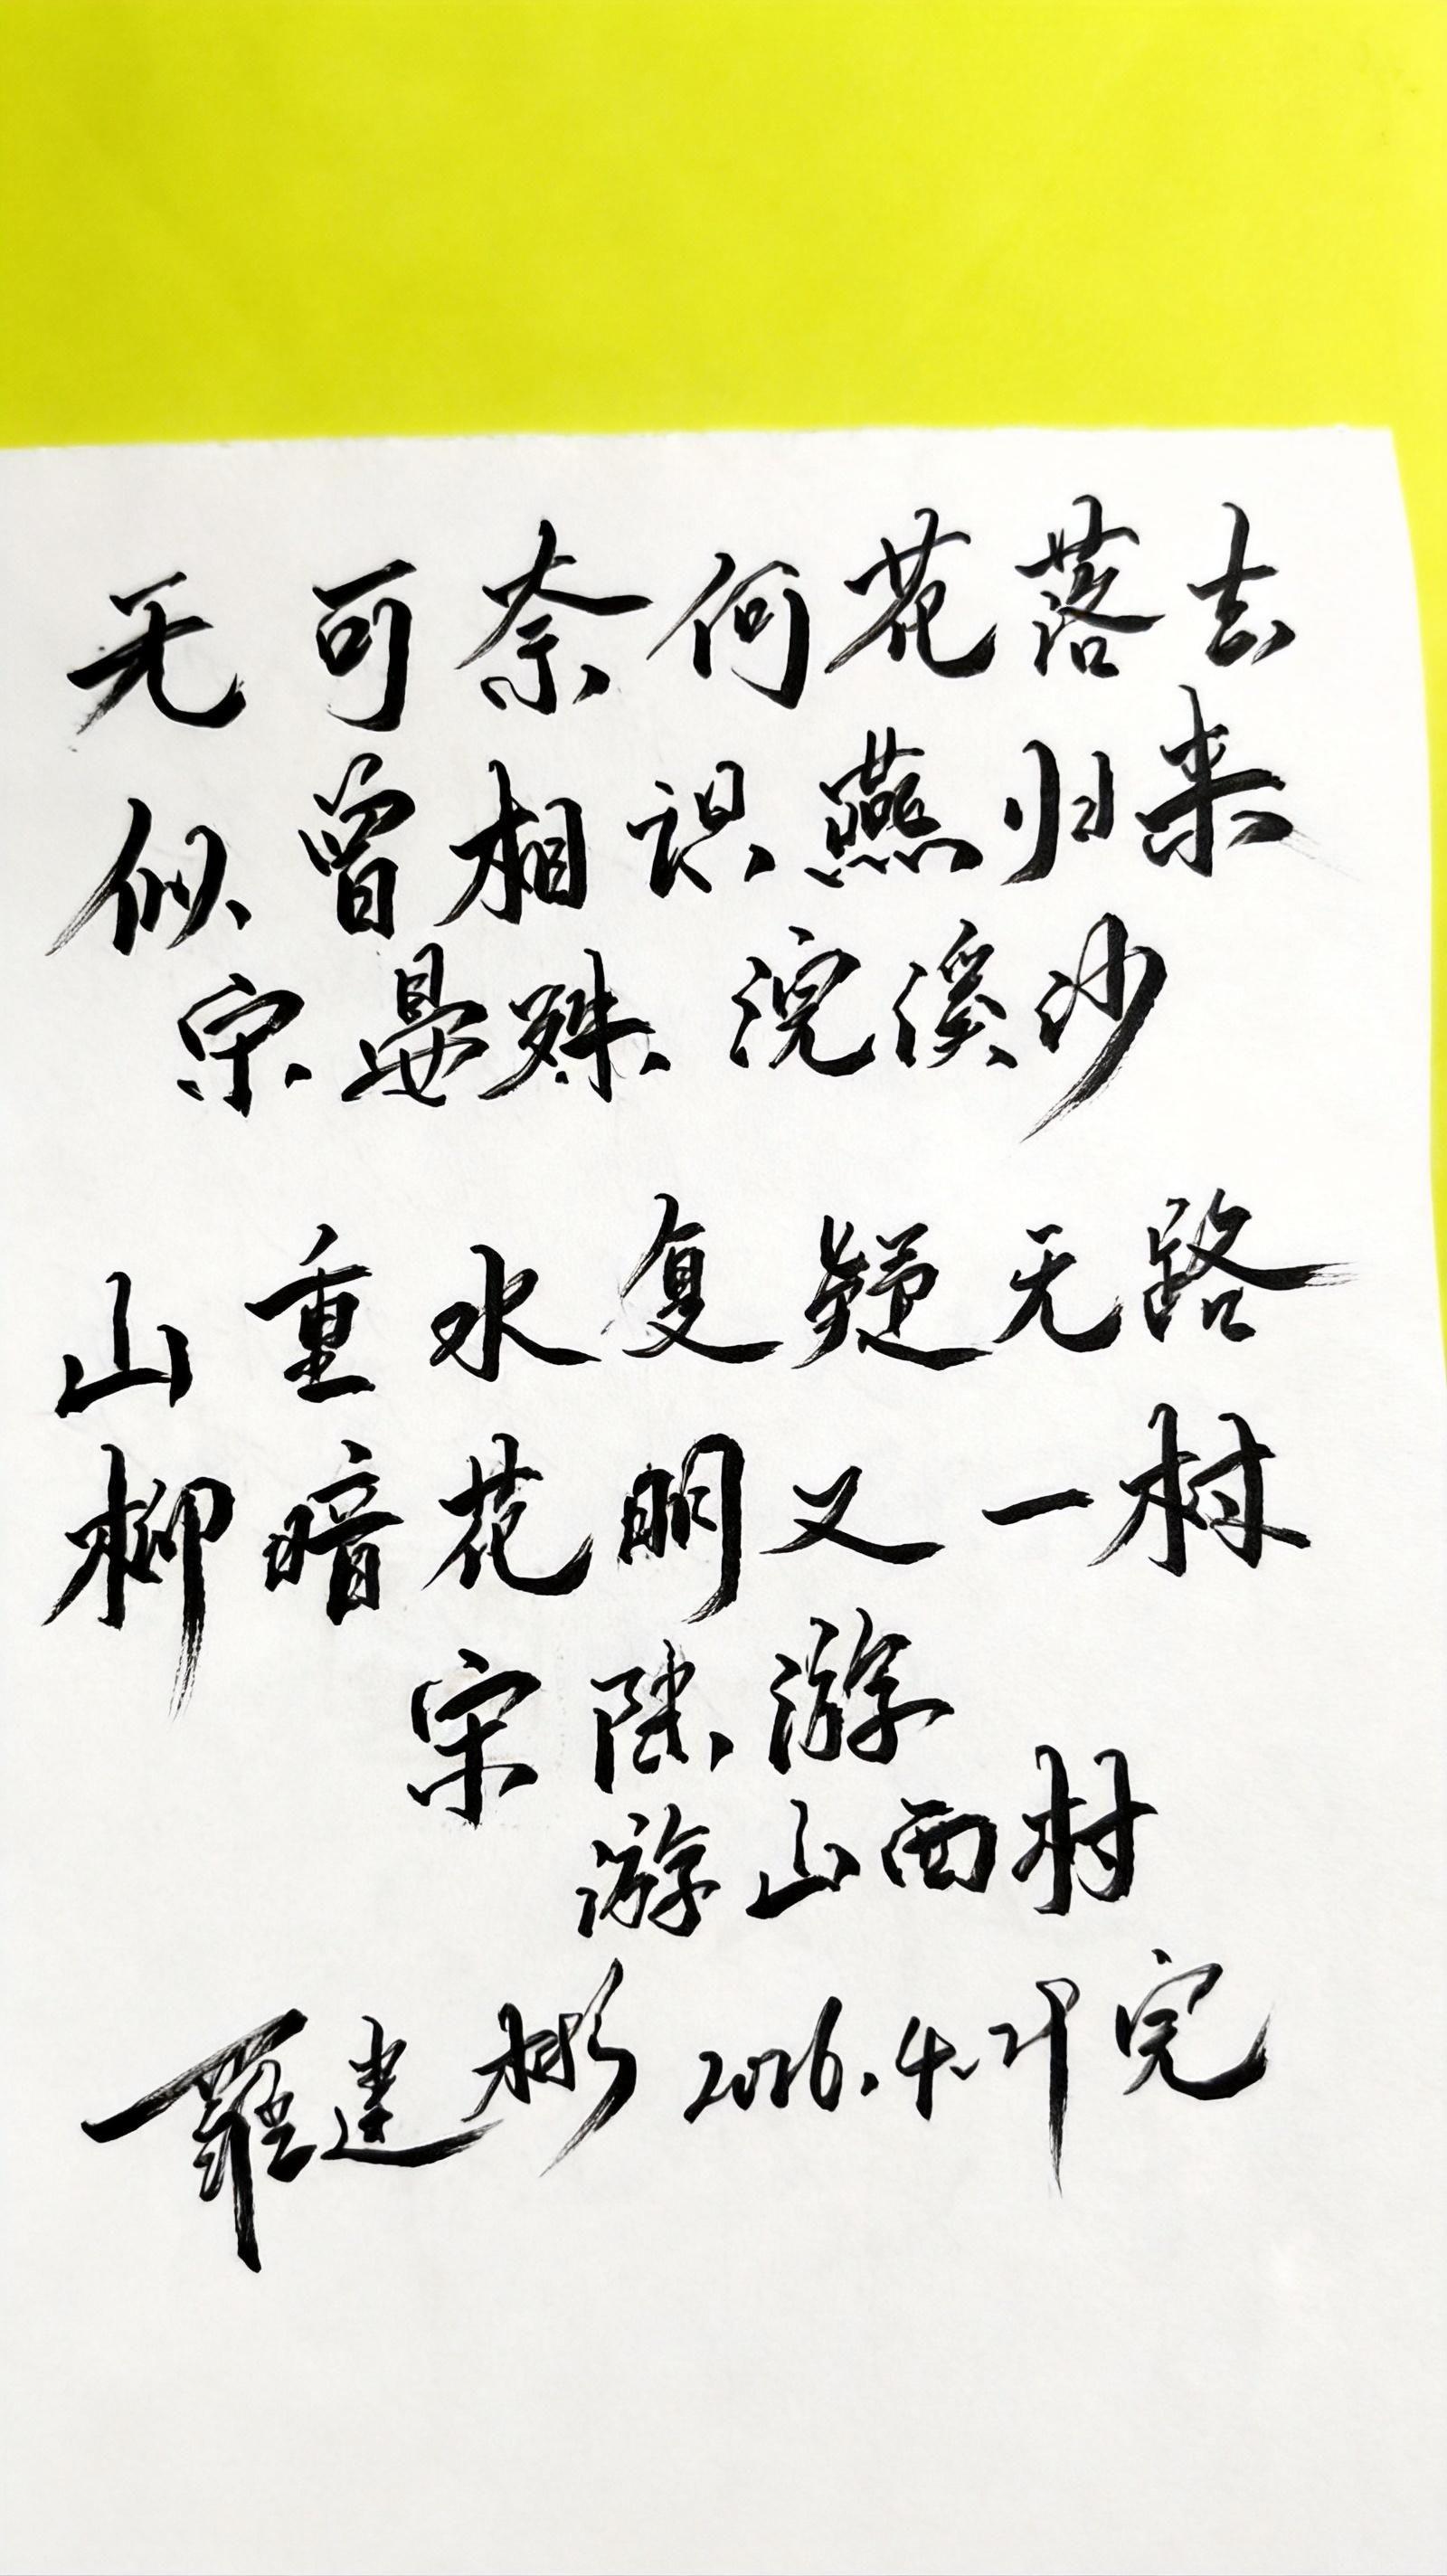 无可奈何花落去
似曾相识燕归来
宋晏殊 浣溪沙
山重水复疑无路
柳暗花明又一村
宋陆游
游山西村
罗建彬 2026.4.21 完